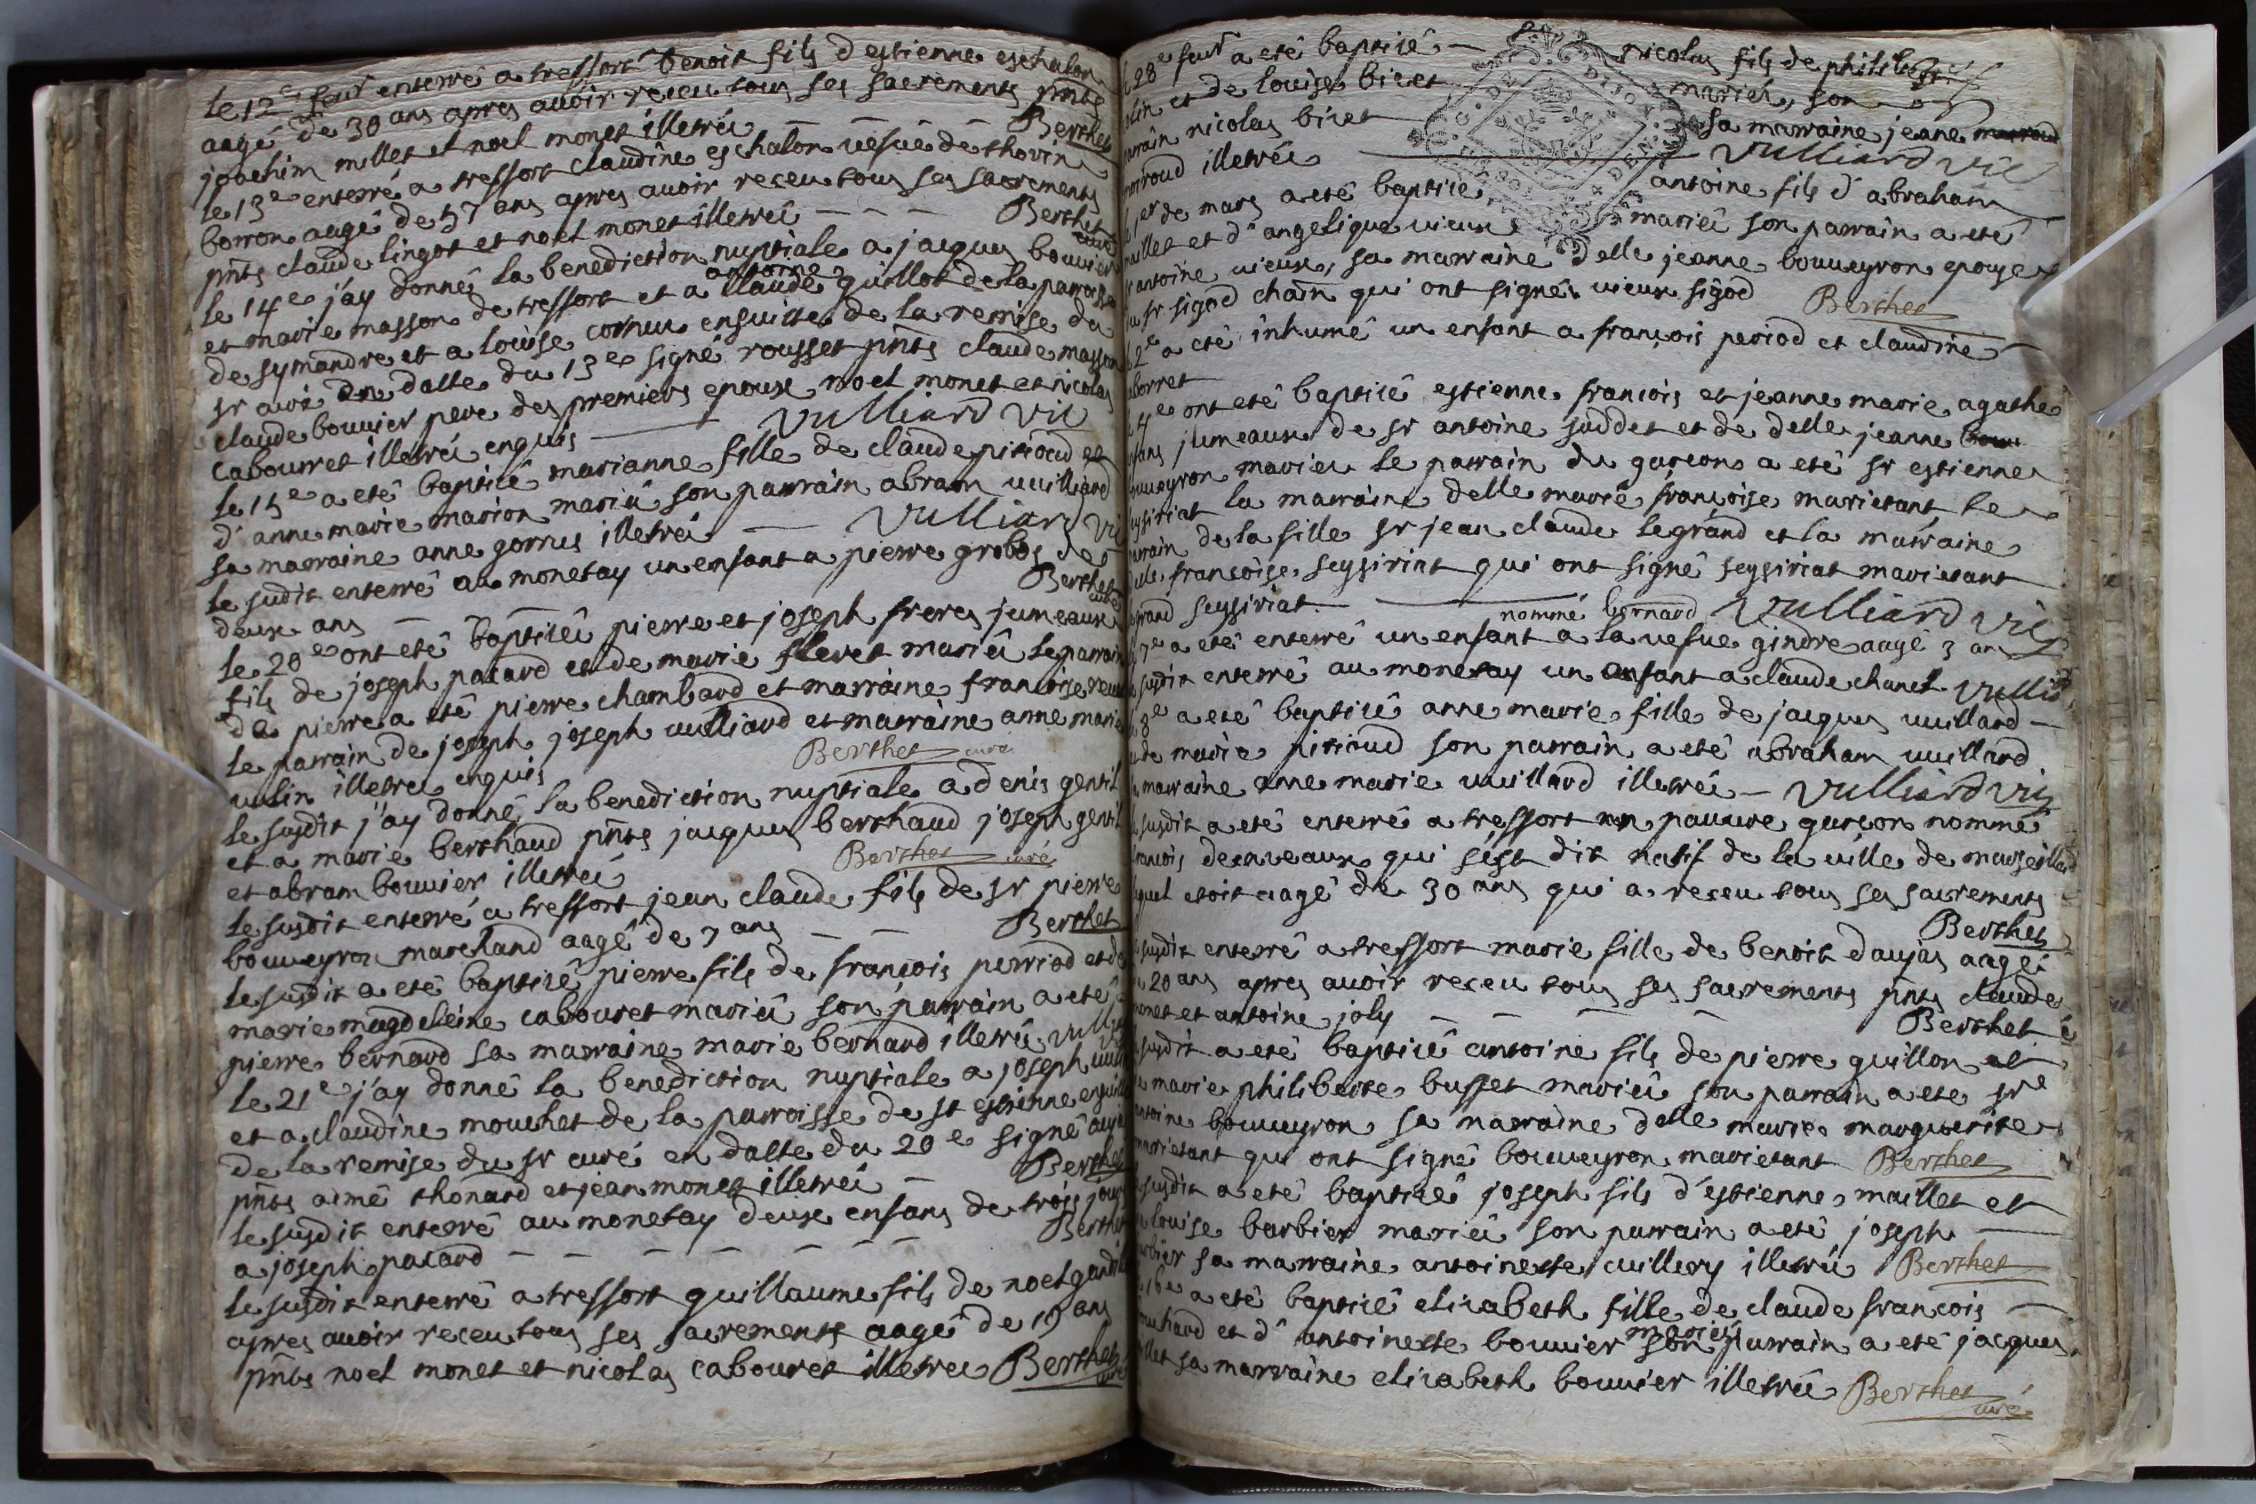 le 12e feur enterré a tressort benoit fils d estienne eschalon
aagé de 30 ans apres auoir receu tous ses sacrements pnts
joachim millet et noel monet illetréz — — — Berthet
le 13e enterré a tressort claudine eschalon uefue de thouin
borron aagé de 57 ans apres auoir receu tous ses sacrements
pnts claude lingot et noel monet illetréz — — — Berthet curé
le 14e j'ay donné la benediction nuptiale a jacques bouuier
et marie masson de tressort et a antoine claude guillot de la parroisse
de symandre et a loüise cornue ensuitte de la remise du
sr curé en datte du 13e signé rousset pnts claude masson
claude bouuier pere des premiers epoux noel monet et nicolas
cabouret illetréz enquis — Vulliard vic
le 15e a eté baptizé marianne fille de claude pitioud et
d'anne marie marion mariéz son parrain abram uuilliard
sa marraine anne gornus illetréz — Vulliard vi
le sudit enterré au monetay un enfant a pierre grobos de
deux ans — Berthet curé
le 20e ont eté baptizéz pierre et joseph freres jumeaux
fils de joseph pacard et de marie fleret mariéz le parrain
de pierre a eté pierre chambard et marraine francoise
le parrain de joseph joseph uulliard et marraine anne marie
uulin illetrez enquis Berthet curé
le susdit j'ay donné la benediction nuptiale a denis gentil
et a marie berthaud pnts jacques berthaud joseph gentil
et abram bouuier illetréz Berthet curé
le susdit enterré a tressort jean claude fils de sr pierre
bouueyron marchand aagé de 7 ans — — Berthet
le susdit a eté baptizé pierre fils de françois perriod et de
marie magdeleine cabouret mariéz son parrain a eté
pierre bernard sa marraine marie bernard illetréz
le 21e j'ay donné la benediction nuptiale a joseph
et a claudine mouchet de la parroisse de st estienne
de la remise du sr curé en datte du 20e signé
pnts aimé thonard et jean monet illetréz — Berthet
le susdit enterré au monetay deux enfans de trois jours
a joseph pacard — — — — — — Berthet
le susdit enterré a tressort guillaume fils de noel
apres auoir receu tous ses sacrements aagé de 19 ans
pnts noel monet et nicolas cabouret illetréz Berthet curé
28e feur a eté baptizé — nicolas fils de philibe
et de louise bizet mariéz, son
parrain nicolas bizet sa marraine jeanne
illetréz — Vulliard vic
1er de mars a eté baptizé antoine fils d'abraham
maillet et d'angelique uieux mariéz son parrain a eté
sr antoine uieux, sa marraine delle jeanne bouueyron epouse
du sr sigod chain qui ont signéz uieux sigod Berthet
2e a eté inhumé un enfant a françois period et claudine
4e ont eté baptizé estienne francois et jeanne marie agathe
enfans jumeaux de sr antoine suddet et de delle jeanne
bouueyron mariez le parrain du garcon a eté sr estienne
seysiriat la marraine delle marie françoise marietant le
parrain de la fille sr jean claude legrand et la marraine
delle françoise seysiriat qui ont signé seysiriat marietant
legrand seysiriat — Vulliard vic
7e a eté enterré un enfant nommé bernard a la uefue gindre aagé 3 ans
susdit enterré au monetay un enfant a claude chanel
8e a eté baptizé anne marie fille de jacques uuillard —
de marie pitioud son parrain a eté abraham uuillard
marraine anne marie uuillard illetréz — Vulliard vic
susdit a eté enterré a tressort un pauure garçon nommé
francois qui s'est dit natif de la uille de marseille
lequel etoit aagé de 30 ans qui a receu tous ses sacrements
Berthet
susdit enterré a tressort marie fille de benoit daujas aagé
20 ans apres auoir receu tous ses sacrements pnts claude
monet et antoine joly — — — — Berthet
susdit a eté baptizé antoine fils de pierre guillon et
marie philiberte busset mariéz son parrain a ete sre
antoine bouueyron sa marraine delle marie marguerite
marietant qui ont signé bouueyron marietant Berthet
susdit a eté baptizé joseph fils d'estienne maillet et
louise barbier mariéz son parrain a eté joseph —
barbier sa marraine antoinette cuillery illetréz Berthet
16e a eté baptizé elizabeth fille de claude françois —
et d'antoinette bouuier mariés son parrain a eté jacques
sa marraine elizabeth bouuier illetréz Berthet curé